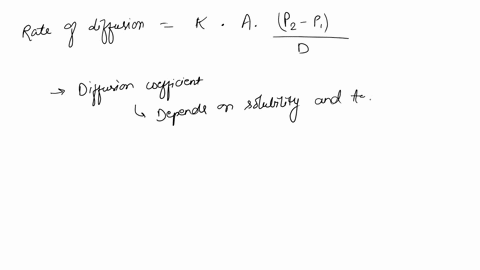 Rate of diffusion = K . A. (P₂ - P₁)
D
→ Diffusion coefficient
↳ Depends on solubility and